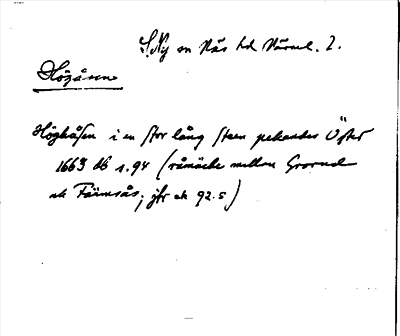 S. Ny sn Näs hd Värml. l.
Högåsen
Höghåsen i en stor lång sten pekandes Öster
1663 Lb s. 94 (råmärke mellan Grorud
och Färmsås; jfr ok 92.5)